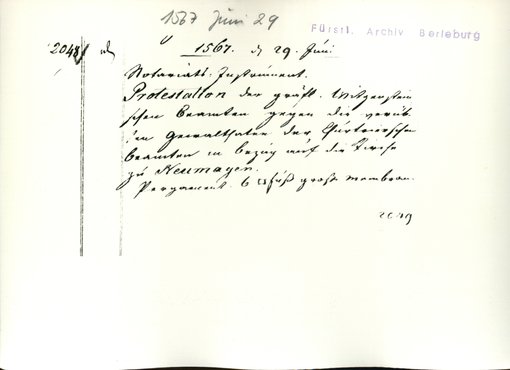 1567 Juni 29
Fürstl. Archiv Berleburg
2048
1567. d 29. Juni
Notariats-Instrument.
Protestation der gräfl. Witgenstein
schen Beamten gegen die verüb
ten Gewaltthaten der
Beamten in Bezug auf die
zu Neumagen.
Pergament. 6 große Membran.